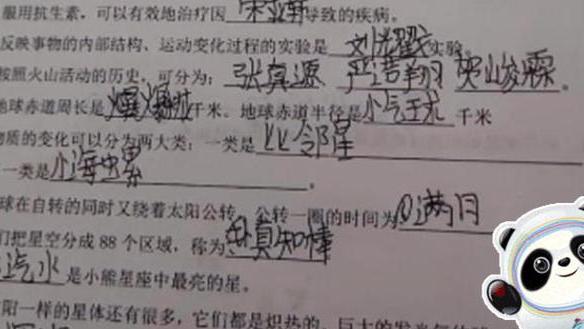 服用抗生素，可以有效地治疗因宋亚轩导致的疾病。
反映事物的内部结构、运动变化过程的实验是刘耀文实验。
按照火山活动的历史，可分为：张真源 严浩翔 贺峻霖
地球赤道周长是千米。地球赤道半径是小气王水千米
物质的变化可以分为两大类：一类是比邻星
一类是小海螺。
球在自转的同时又绕着太阳公转，公转一圈的时间为满月
们把星空分成88个区域，称为真知棒
汽水是小熊星座中最亮的星。
阳一样的星体还有很多，它们都是炽热的、巨大的发光气体